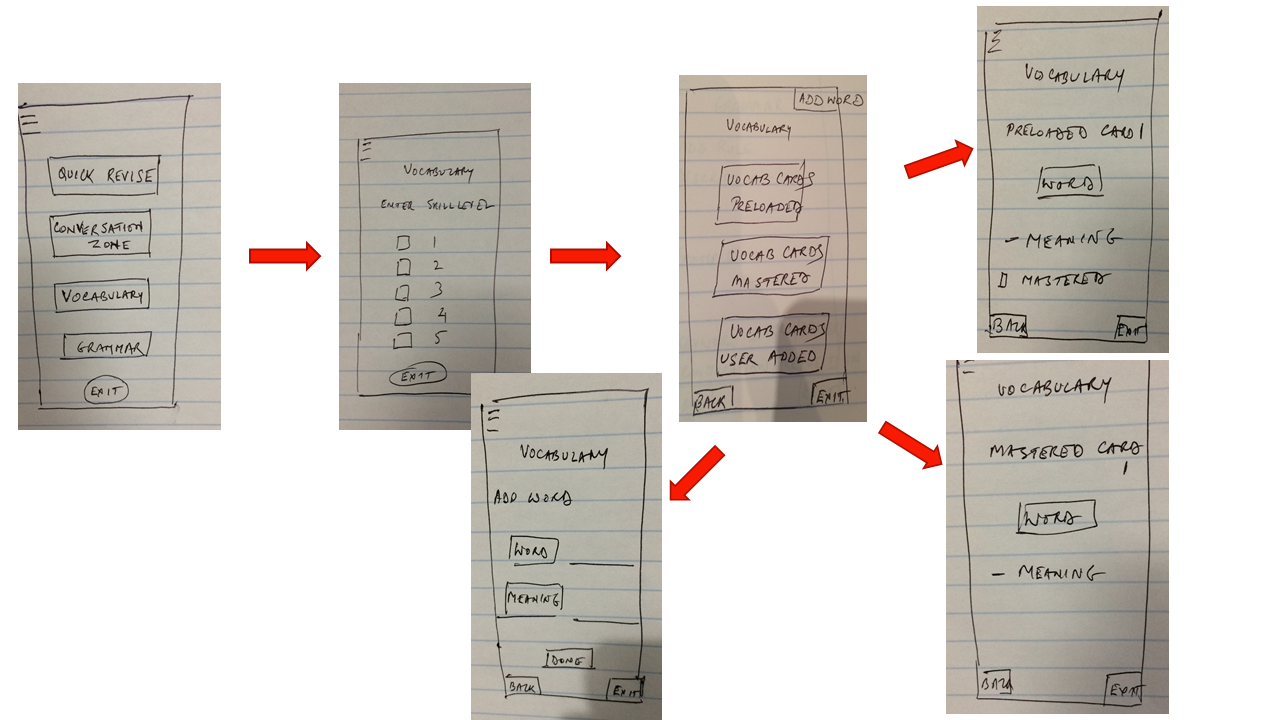 QUICK REVISE
CONVERSATION
ZONE
VOCABULARY
GRAMMAR
EXIT
VOCABULARY
ENTER SKILL LEVEL
1
2
3
4
5
EXIT
ADD WORD
VOCABULARY
VOCAB CARDS
PRELOADED
VOCAB CARDS
MASTERED
VOCAB CARDS
USER ADDED
BACK EXIT
VOCABULARY
ADD WORD
WORD
MEANING
DONE
BACK EXIT
VOCABULARY
PRELOADED CARD 1
WORD
- MEANING
MASTERED
BACK EXIT
VOCABULARY
MASTERED CARD
1
WORD
- MEANING
BACK EXIT